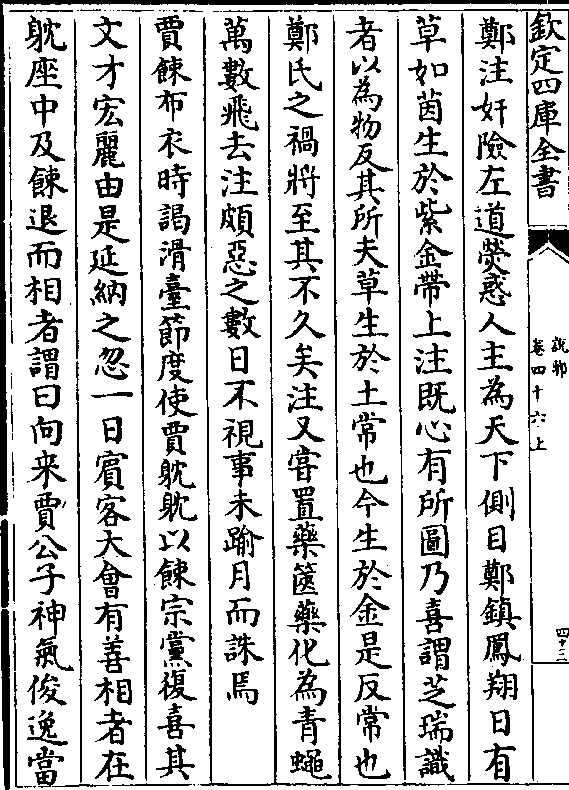 欽定四庫全書
說郛
卷四十六上
四十三
鄭注奸險左道熒惑人主為天下側目鄭鎮鳳翔日有
草如茵生於紫金帶上注既心有所圖乃喜謂芝瑞識
者以為物反其所夫草生於土常也今生於金是反常也
鄭氏之禍將至其不久矣注又嘗置藥篋藥化為青蠅
萬數飛去注頗惡之數日不視事未踰月而誅焉
賈餗布衣時謁滑臺節度使賈躭躭以餗宗黨復喜其
文才宏麗由是延納之忽一日賓客大會有善相者在
躭座中及餗退而相者謂曰向来賈公子神氣俊逸當